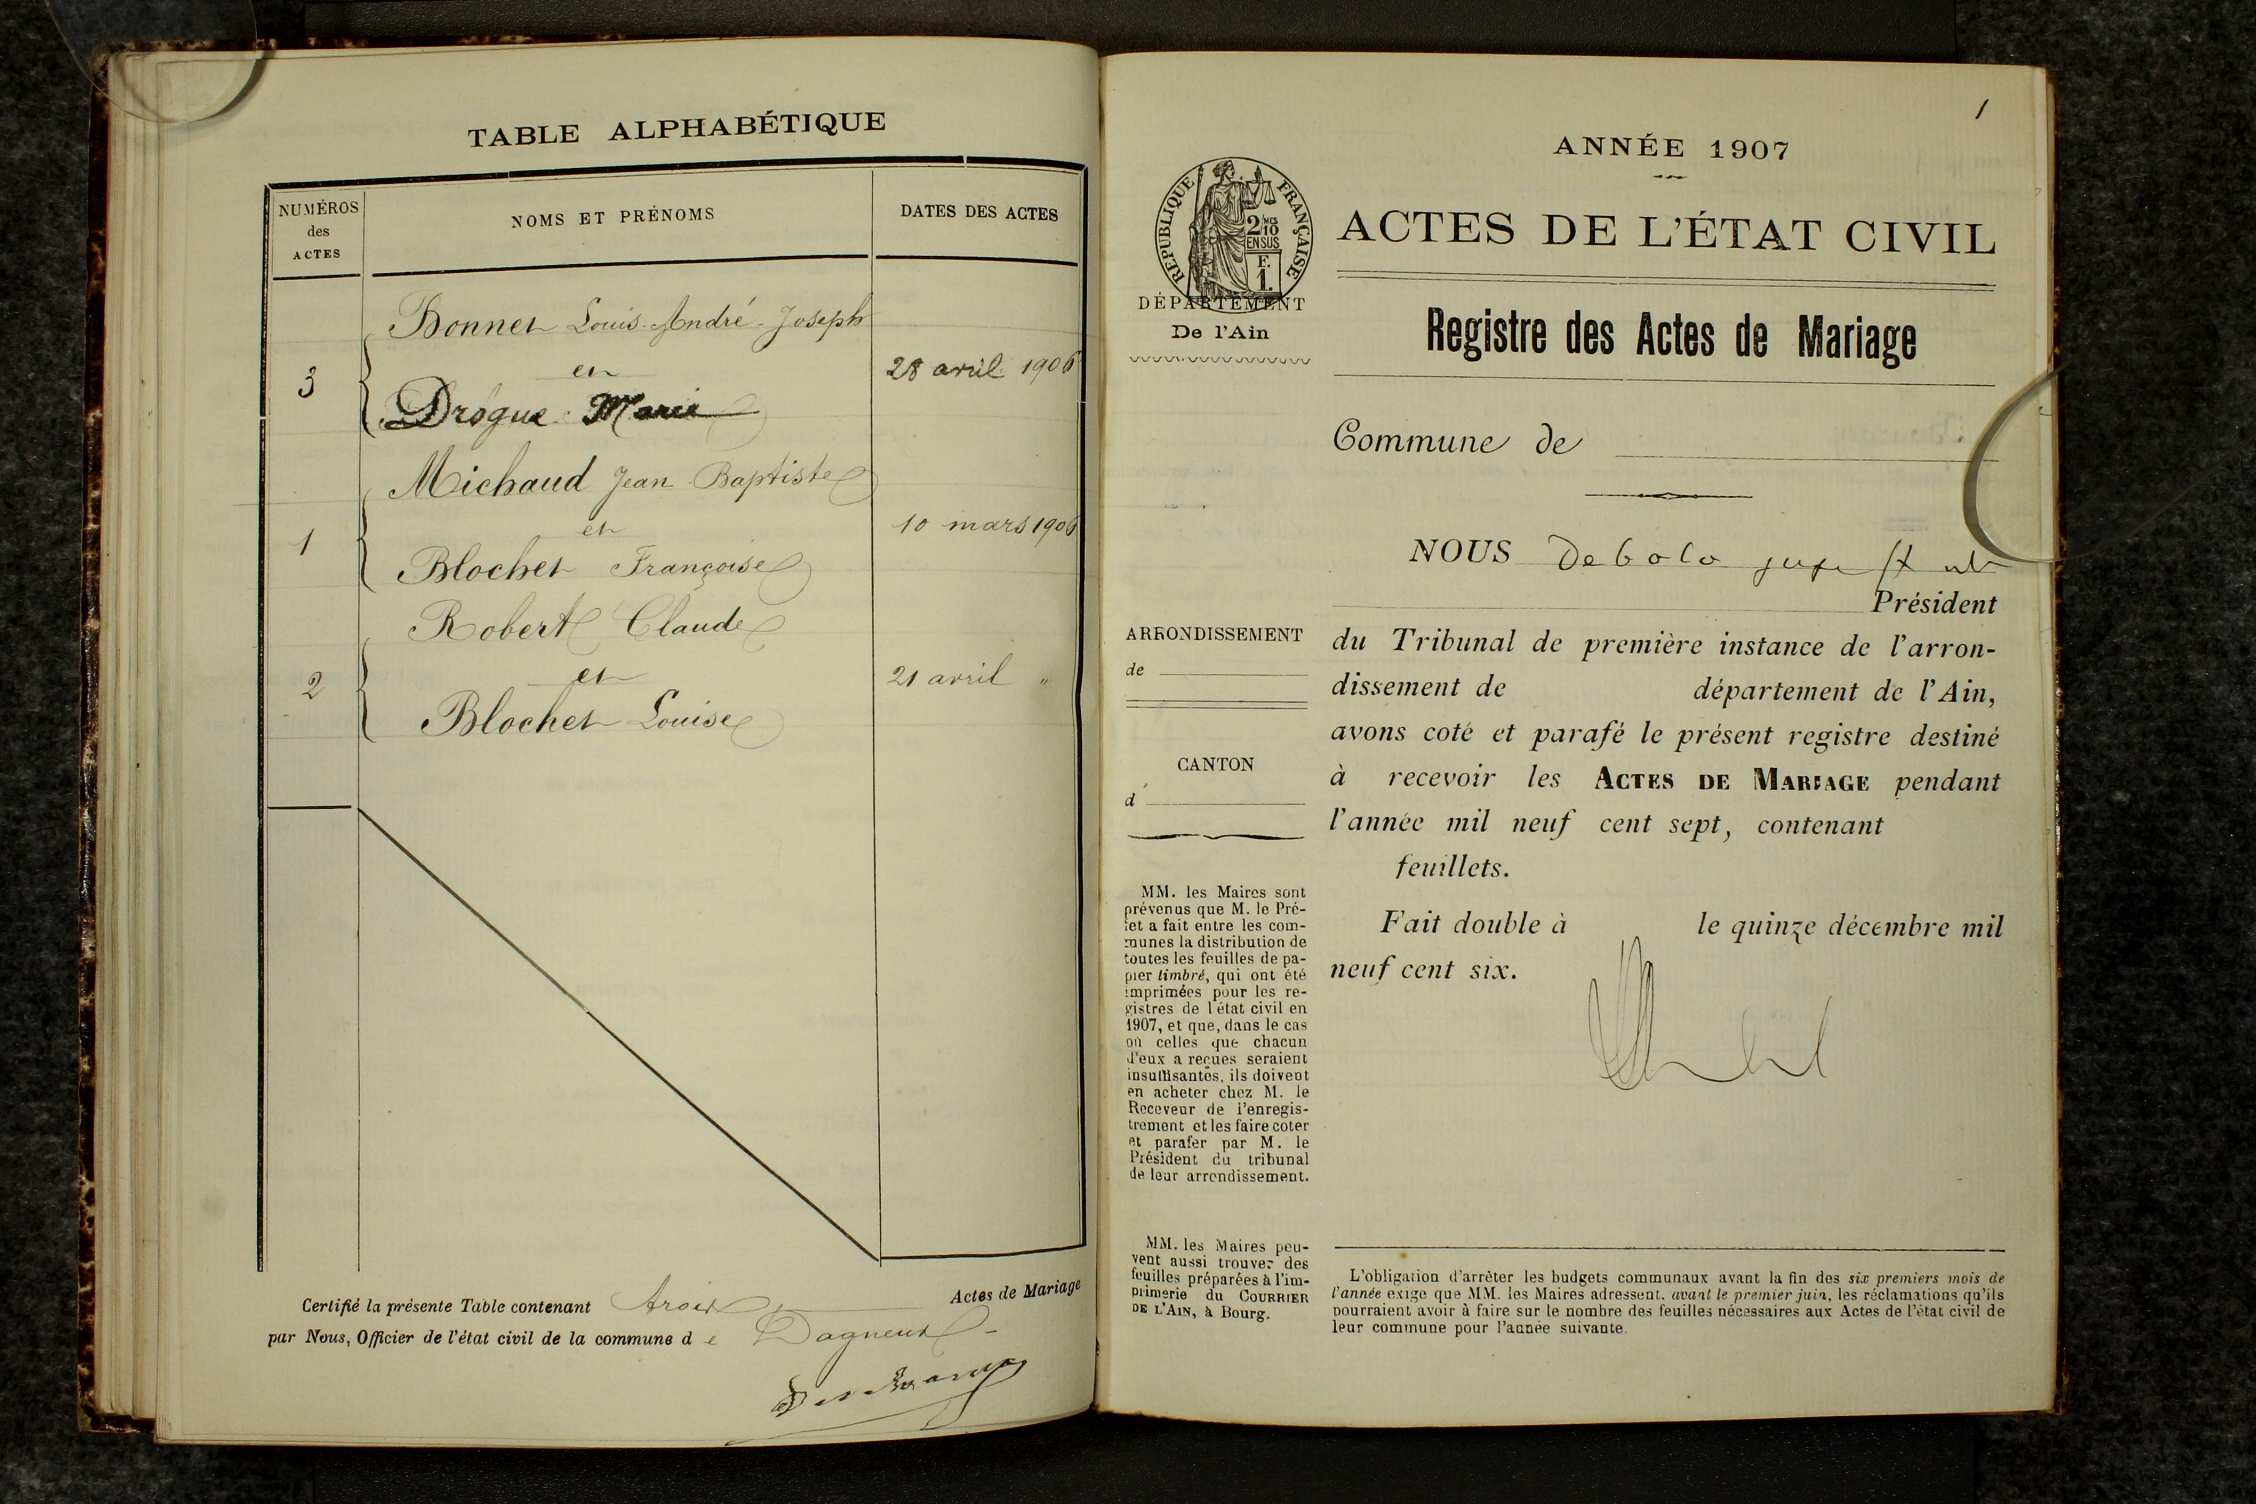 TABLE ALPHABÉTIQUE
NUMÉROS
des
ACTES
NOMS ET PRÉNOMS
DATES DES ACTES
Bonnet Louis-André-Joseph
3
et
28 avril 1906
Drogue Marie
Michaud Jean Baptiste
1
et
10 mars 1906
Blochet Françoise
Robert Claude
2
et
21 avril "
Blochet Louise
Certifié la présente Table contenant trois Actes de Mariage
par Nous, Officier de l'état civil de la commune de Dagneux
1
ANNÉE 1907
RÉPUBLIQUE FRANÇAISE
2/10 MES
EN SUS
F.
1.
ACTES DE L'ÉTAT CIVIL
DÉPARTEMENT
De l'Ain
Registre des Actes de Mariage
Commune de
NOUS
Président
ARRONDISSEMENT
de
du Tribunal de première instance de l'arron-
dissement de département de l'Ain,
avons coté et parafé le présent registre destiné
CANTON
d
à recevoir les ACTES DE MARIAGE pendant
l'année mil neuf cent sept, contenant
feuillets.
Fait double à le quinze décembre mil
neuf cent six.
MM. les Maires sont
prévenus que M. le Pré-
fet a fait entre les com-
munes la distribution de
toutes les feuilles de pa-
pier timbré, qui ont été
imprimées pour les re-
gistres de l'état civil en
1907, et que, dans le cas
où celles que chacun
d'eux a reçues seraient
insuffisantes, ils doivent
en acheter chez M. le
Receveur de l'enregis-
trement et les faire coter
et parafer par M. le
Président du tribunal
de leur arrondissement.
MM. les Maires peu-
vent aussi trouver des
feuilles préparées à l'im-
primerie du COURRIER
DE L'AIN, à Bourg.
L'obligation d'arrêter les budgets communaux avant la fin des six premiers mois de
l'année exige que MM. les Maires adressent, avant le premier juin, les réclamations qu'ils
pourraient avoir à faire sur le nombre des feuilles nécessaires aux Actes de l'état civil de
leur commune pour l'année suivante.